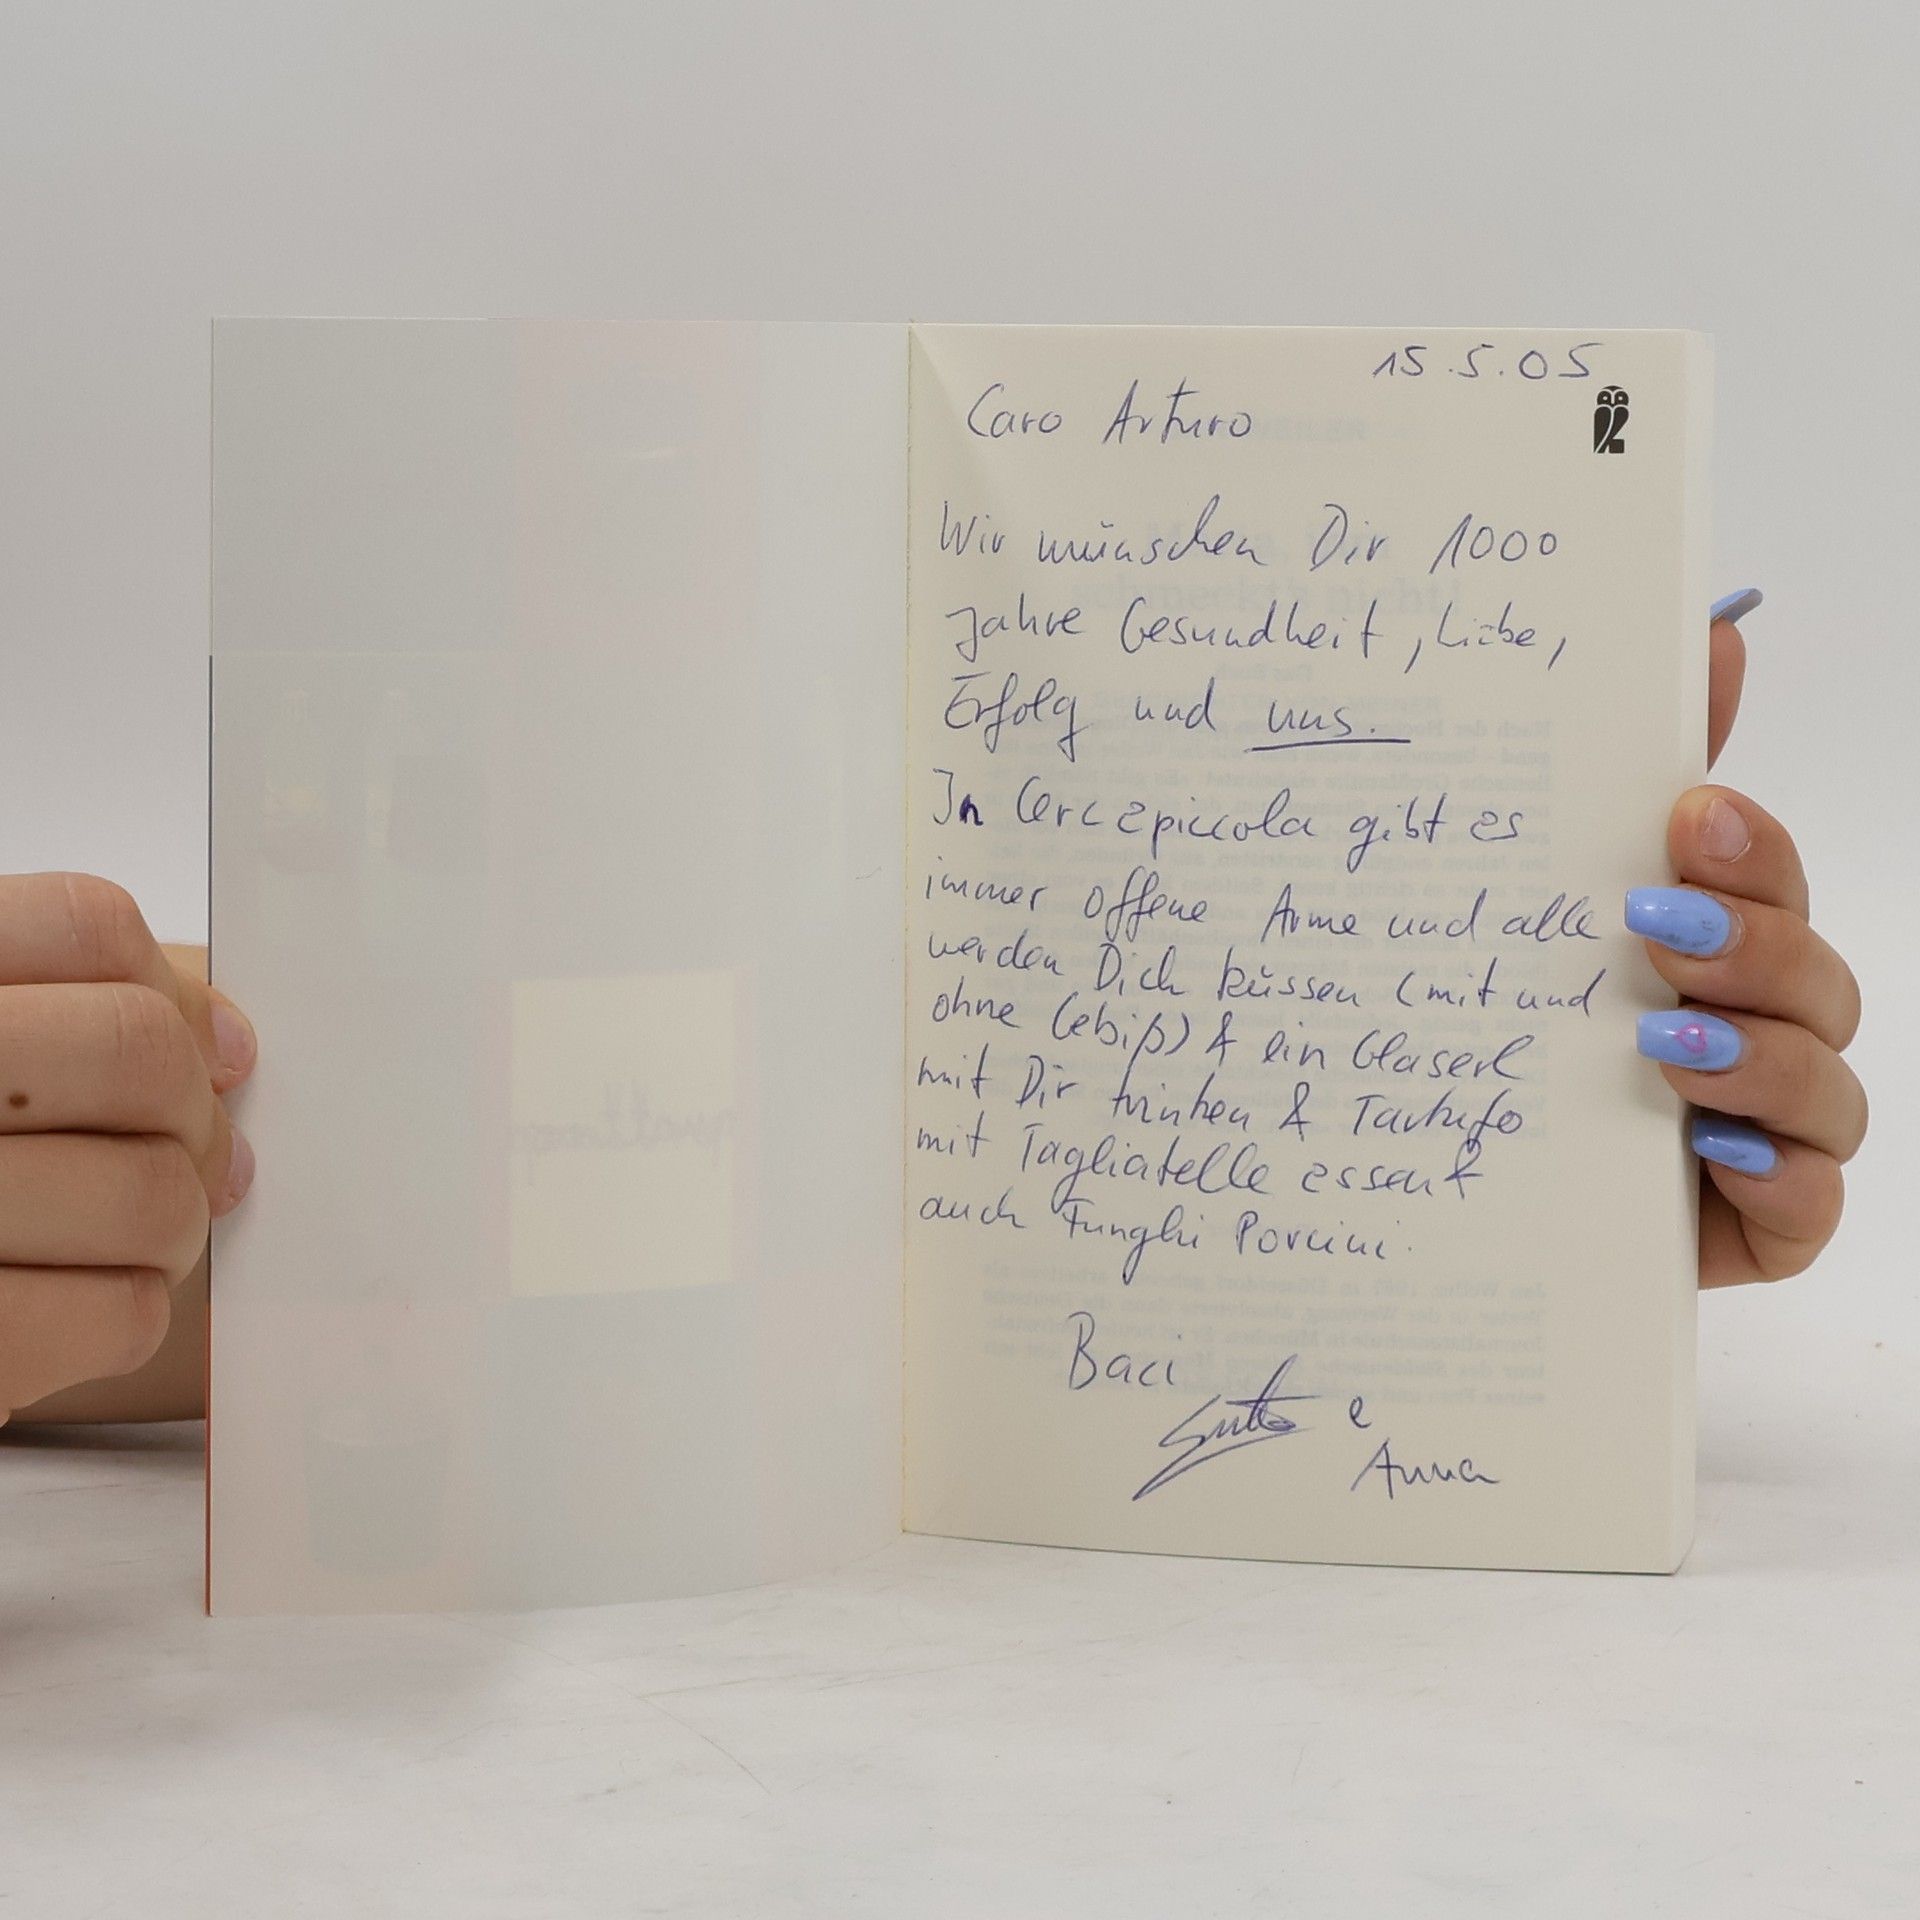 15.5.05
Caro Arturo
Wir wünschen Dir 1000
Jahre Gesundheit, Liebe,
Erfolg und uns.
In Cercepiccola gibt es
immer offene Arme und alle
werden Dich küssen (mit und
ohne Gebiß) & ein Glaserl
mit Dir trinken & Tartufo
mit Tagliatelle essen &
auch Funghi Porcini.
Baci
e
Anna
schmeckt's nicht!